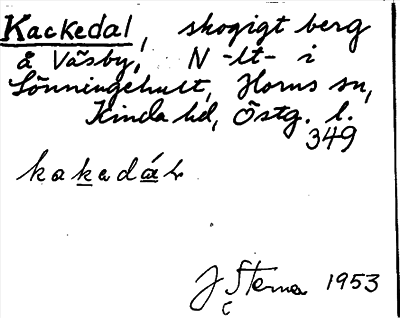 Kackedal, skogigt berg
å Väsby, N -lt- i
Lönningehult, Horns sn,
Kinda hd, Östg. l.
349
kakedàl
J Sterner 1953